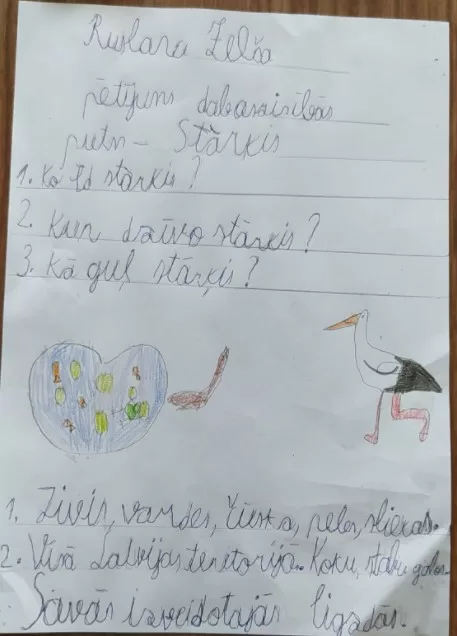 Ruslana Zelča
pētījums dabaszinībās
putn - Stārķis
1. Ko ēd stārķis?
2. Kur dzīvo stārķis?
3. Kā guļ stārķis?
1. Zivis, vardes, čūska, peles, sliekas.
2. Visā Latvijas teritorijā. Koku, stabu galos.
Savās izveidotajās ligzdās.